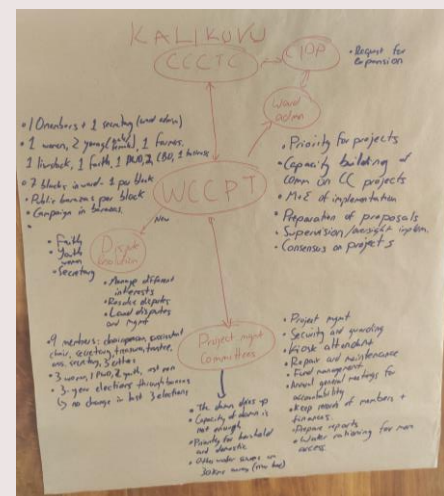 KALIKUVU
CCCTC
CIDP
• Request for
expansion
Ward
admin
• 10 members + 1 secretary (ward admin)
• 1 women, 2 young (male/female), 1 farmer,
1 livestock, 1 faith, 1 PWD, 2 CBO, 1 business
• 7 blocks in ward - 1 per block
• Public barazas per block
• Campaign in barazas
•
WCCPT
Priority for projects
• Capacity building of
comm in CC projects
• M&E of implementation
• Preparation of proposals
• Supervision/oversight implem.
• Consensus on projects
New
Project
• Faith
• Youth
• women
• Secretary
• Manage different
interests
• Resolve disputes
• Land disputes
and mgmt
Project mgmt
Committees
• 9 members: chairperson, assistant
chair, secretary, treasurer,
ass. secretary, 3 others
• 3 women, 1 PWD, 2 youth, rest men
• 3-year elections through baraza
↳ no change in last 3 elections
• The dries up
• Capacity of is
not enough
• Priority for household
and domestic
• Other water source
30km away
• Project mgmt
• Security and guarding
• Kiosk attendant
• Repair and maintenance
• Fund management
• Annual general meetings for
accountability
• Keep record of members +
finances.
• Prepare reports
• Water rationing for
access